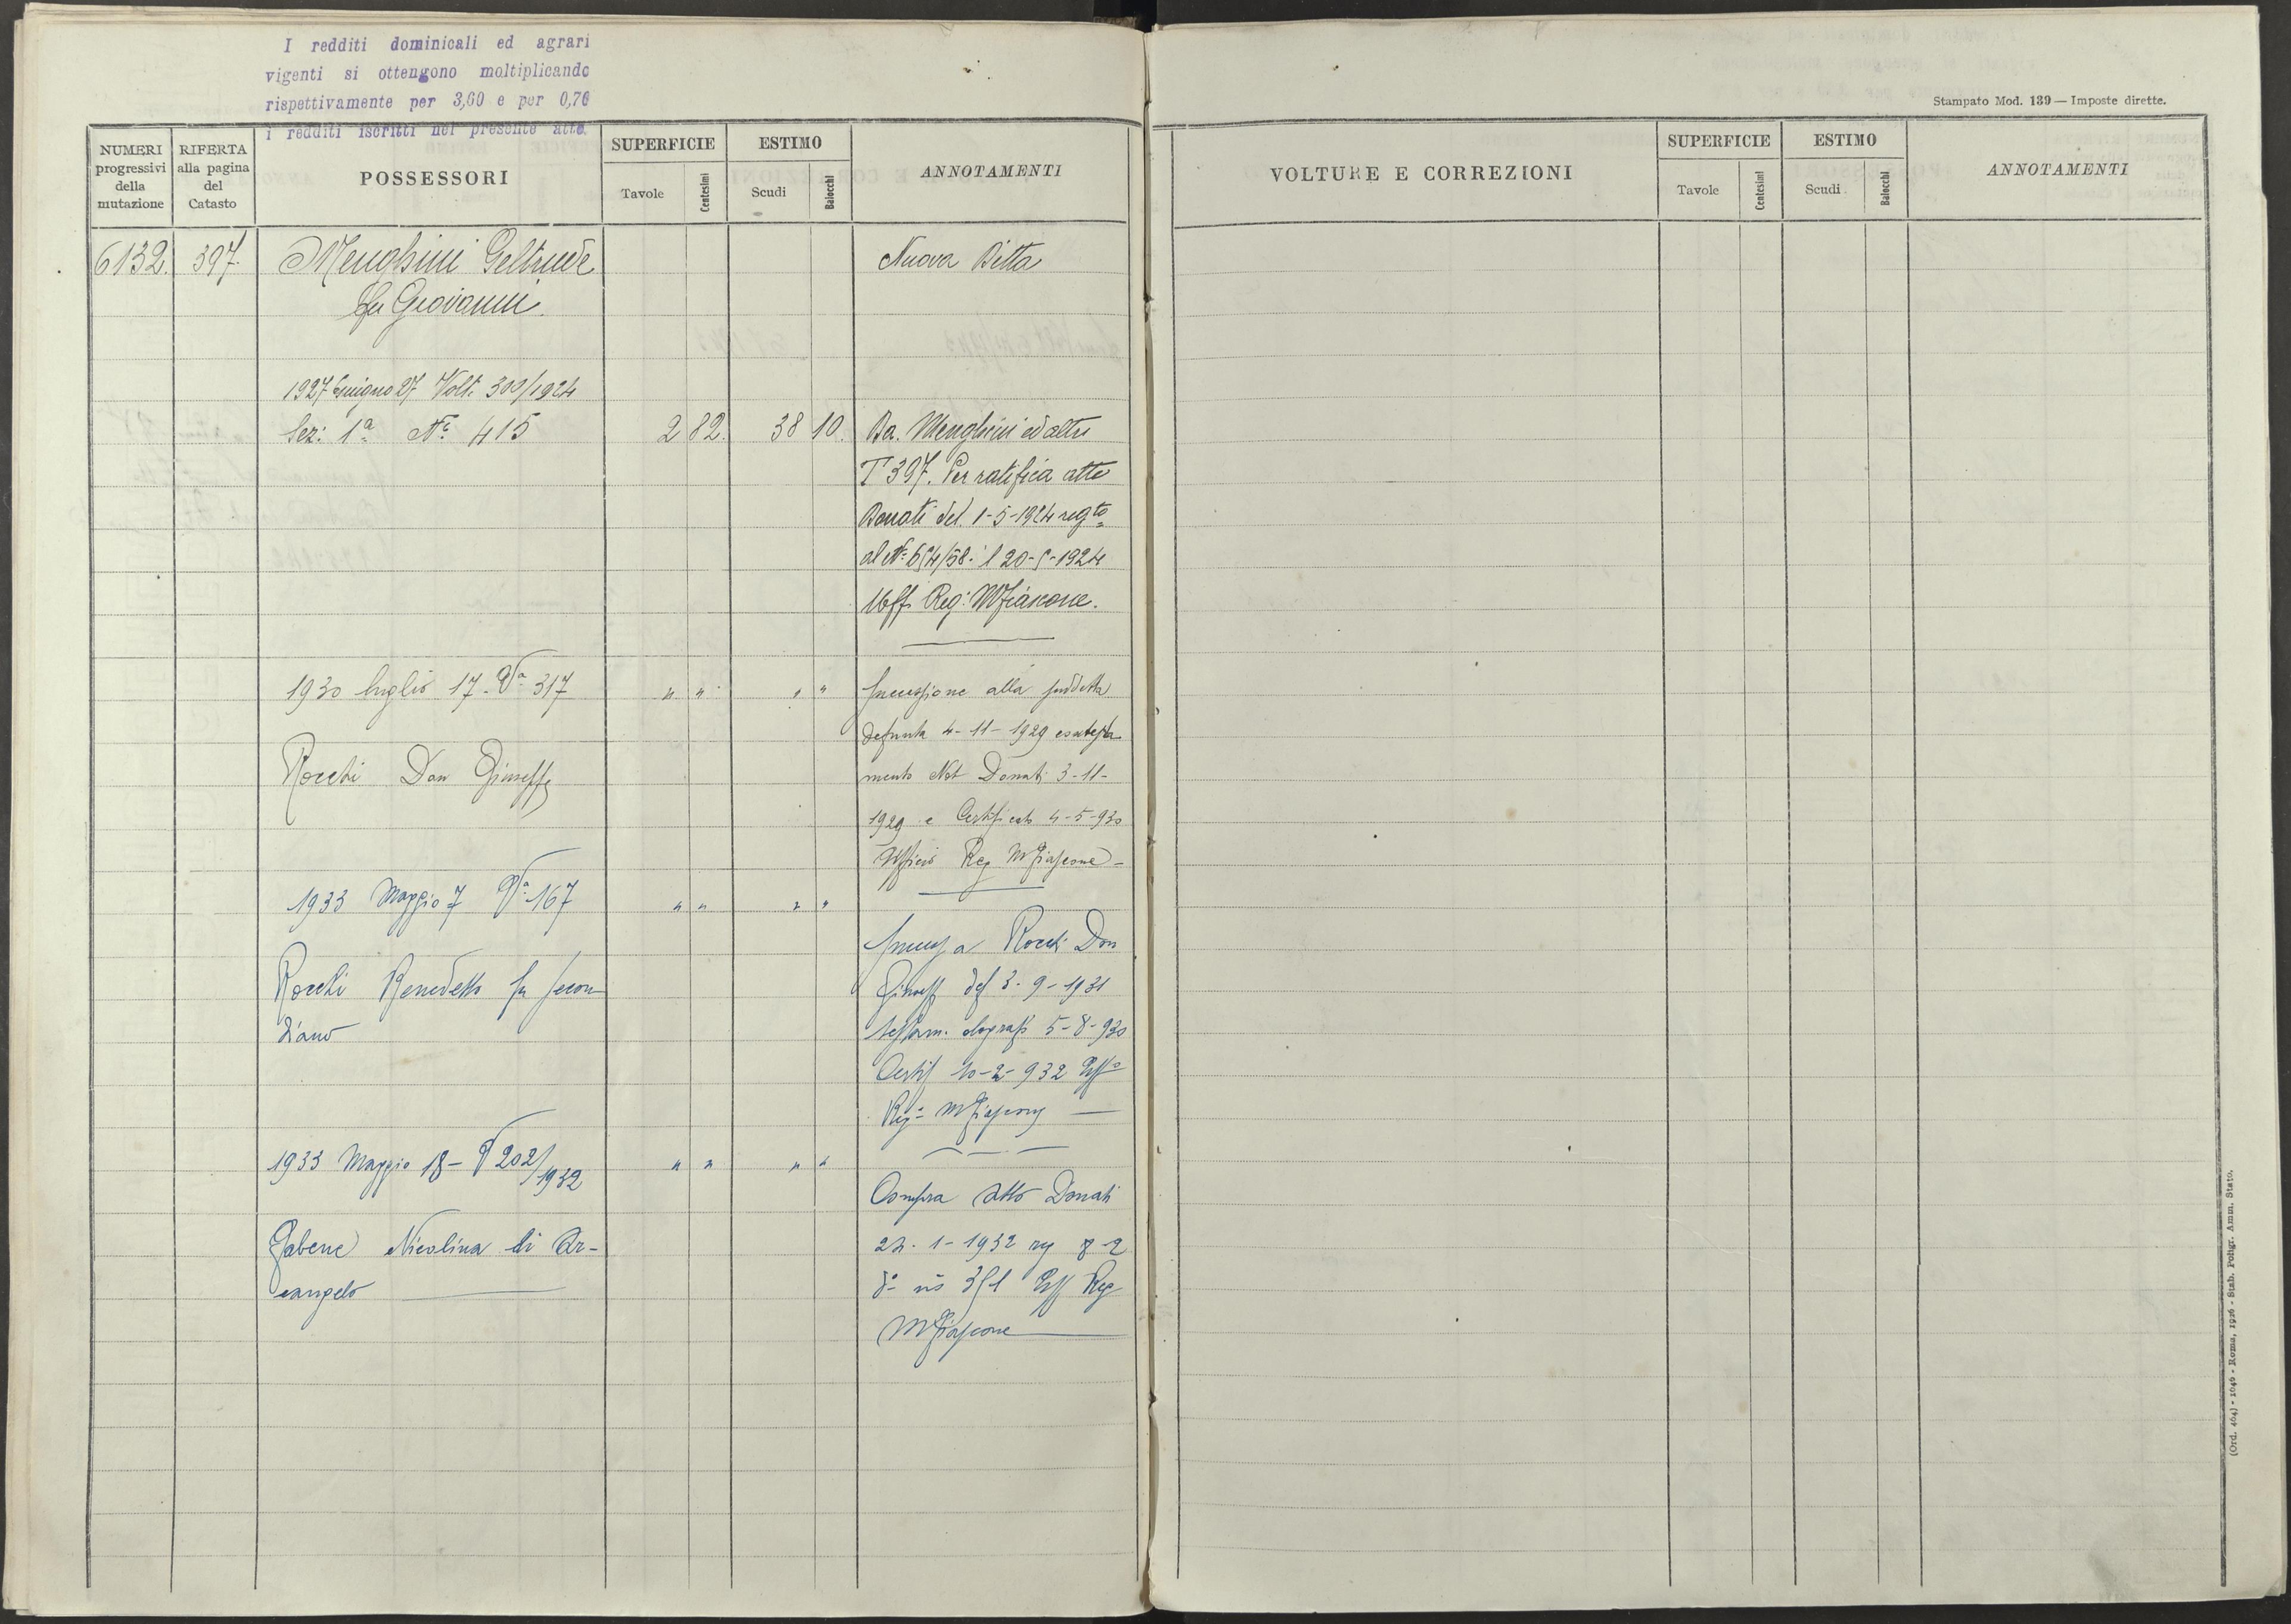 I redditi dominicali ed agrari
vigenti si ottengono moltiplicando
rispettivamente per 3,60 e per 0,70
i redditi iscritti nel presente atto.
Stampato Mod. 139 — Imposte dirette.
NUMERI progressivi della mutazione
RIFERTA alla pagina del Catasto
POSSESSORI
SUPERFICIE
Tavole Centesimi
ESTIMO
Scudi Baiocchi
ANNOTAMENTI
VOLTURE E CORREZIONI
SUPERFICIE
Tavole Centesimi
ESTIMO
Scudi Baiocchi
ANNOTAMENTI
6132. 397. Menghini Geltrude Nuova Ditta
fu Giovanni.
1927 Giugno 27 Volt. 300/1924
Sez: 1ª Nº 415 2 82. 38 10. Da. Menghini ed altri
T 397. Per ratifica atto
Donati del 1-5-1924 regto
al Nº 654/58. il 20-5-1924
Uff. Reg: Mfiascone.
1930 luglio 17. Vª 317 " " " " Successione alla suddetta
defunta 4-11-1929 es. testa
Rocchi Don Giuseppe mento Not Donati 3-11-
1929 e Certificato 4-5-930
Ufficio Reg Mfiascone -
1933 Maggio 7 Vª 167 " " " "
Success a Rocchi Don
Rocchi Benedetto fu Secon Giusep def 3-9-1931
diano testam. olografo 5-8-930
Certif 10-2-932 Uffº
Regº Mfiascone
1933 Maggio 18 - V 202/1932 " " " "
Compra atto Donati
Gabene Nicolina di Ar- 24-1-1932 reg 8-2
cangelo dº nº 351 Uff Reg
Mfiascone
(Ord. 464) - 1046 - Roma, 1926 - Stab. Poligr. Amm. Stato.